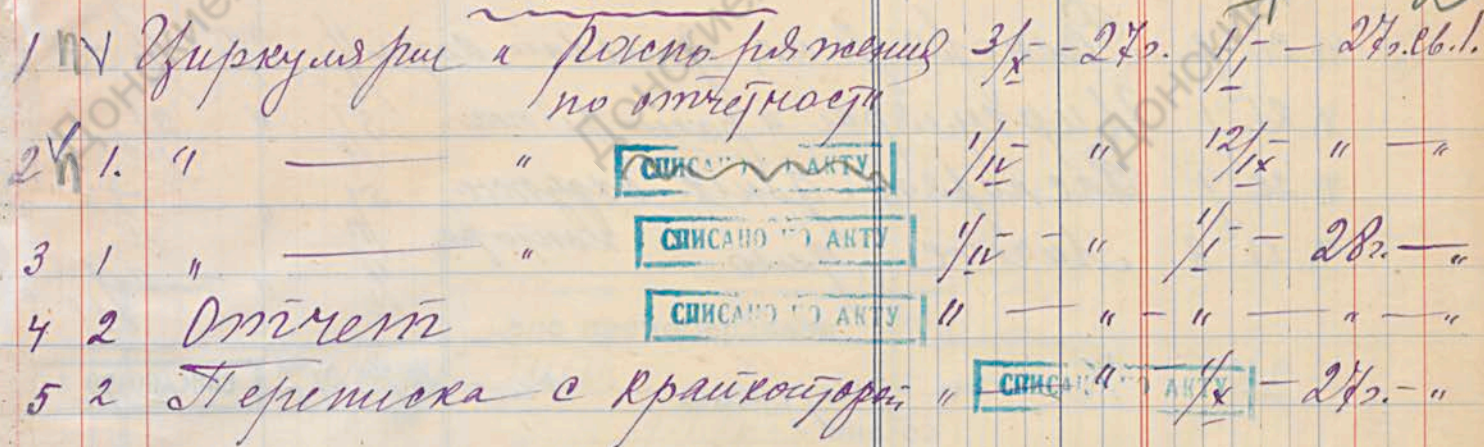 1 п V Циркуляры и распоряжения 3/X - 27г. 1/I - 27г. св. 1.
по отчетности
2 V п 1. " — " СПИСАНО ПО АКТУ 1/IV " 12/IX " — "
3 1 " — " СПИСАНО ПО АКТУ 1/IV - " 1/I - 28г. — "
4 2 Отчет СПИСАНО ПО АКТУ " — " - " — " — "
5 2 Переписка с крайконторой " — СПИСАНО ПО АКТУ " 1/X - 27г. - "